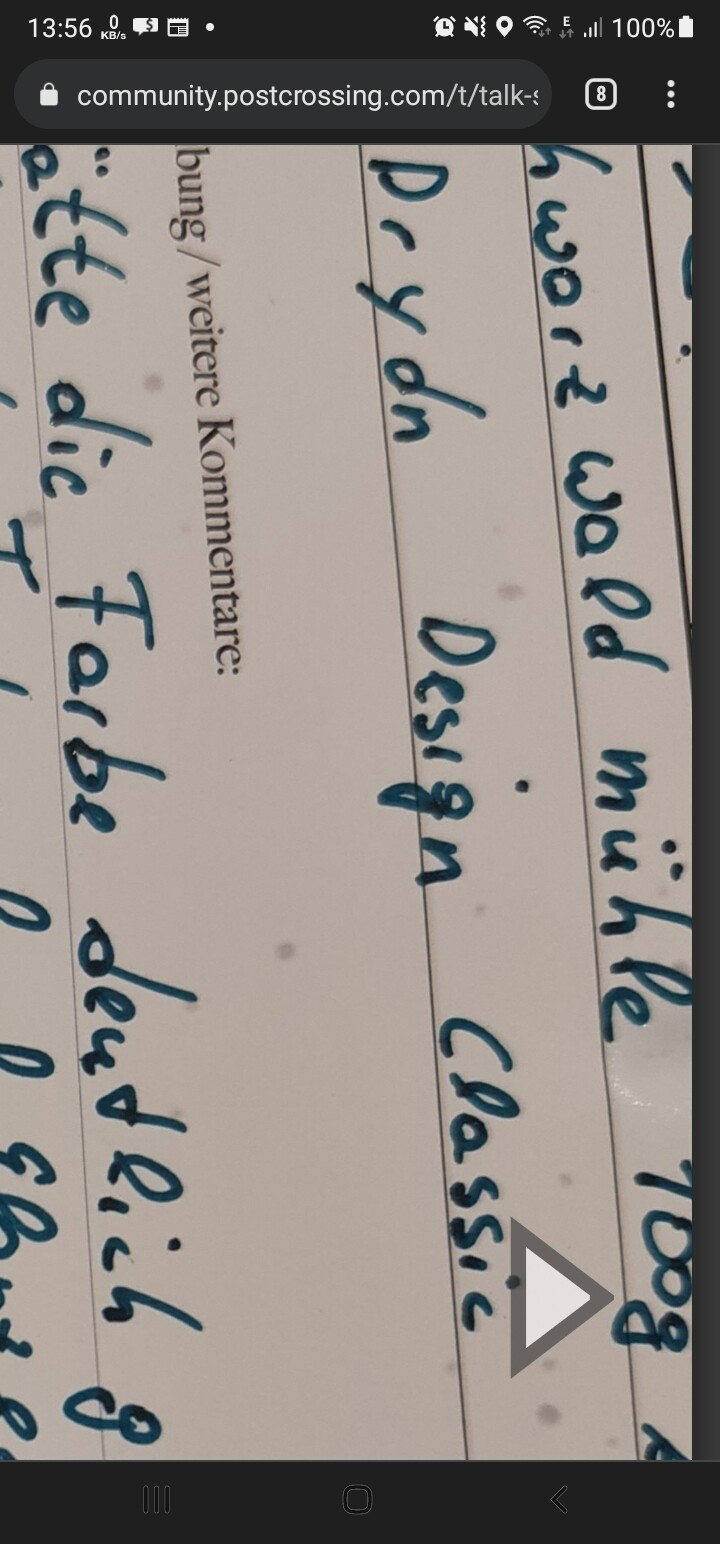 13:56 0 KB/s E 100%
community.postcrossing.com/t/talk-s 8
hwarzwald mühle 100g
Drydn Design Classic
bung / weitere Kommentare:
ätte die Farbe deutlich g